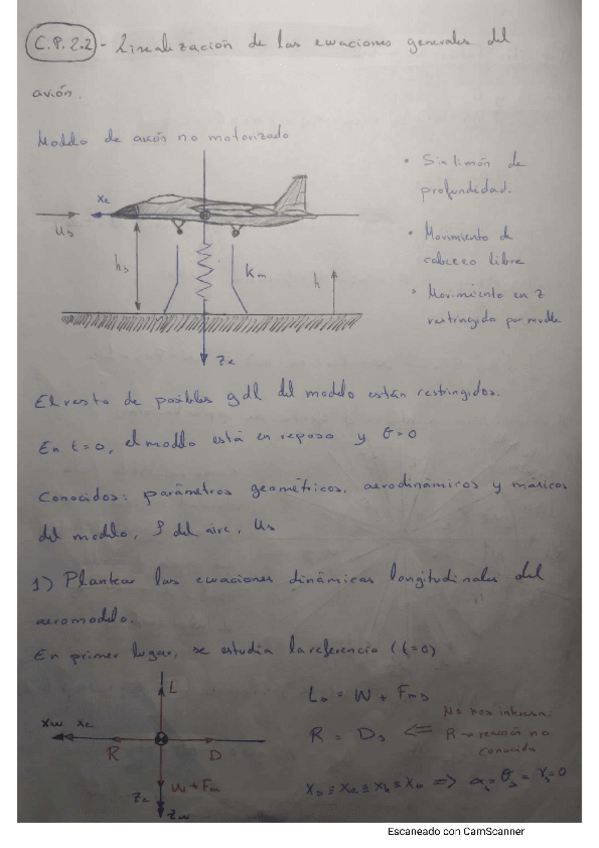 C.P.2.2 - Linealización de las ecuaciones generales del
avión.
Modelo de avión no motorizado
• Sin timón de
profundidad.
• Movimiento de
cabeceo libre
• Movimiento en z
restringido por muelle
xe
us
hs
km
h
ze
El resto de posibles gdl del modelo están restringidos.
En t=0, el modelo está en reposo y θ=0
Conocidos: parámetros geométricos, aerodinámicos y másicos
del modelo, ρ del aire, us
1) Plantear las ecuaciones dinámicas longitudinales del
aeromodelo.
En primer lugar, se estudia la referencia (t=0)
L
xw xe
R
D
W + Fm
ze
zw
Ls = W + Fms
R = Ds ⇐ No nos interesa.
R → reacción no
conocida
⇒ αs = θs = γs = 0
Escaneado con CamScanner